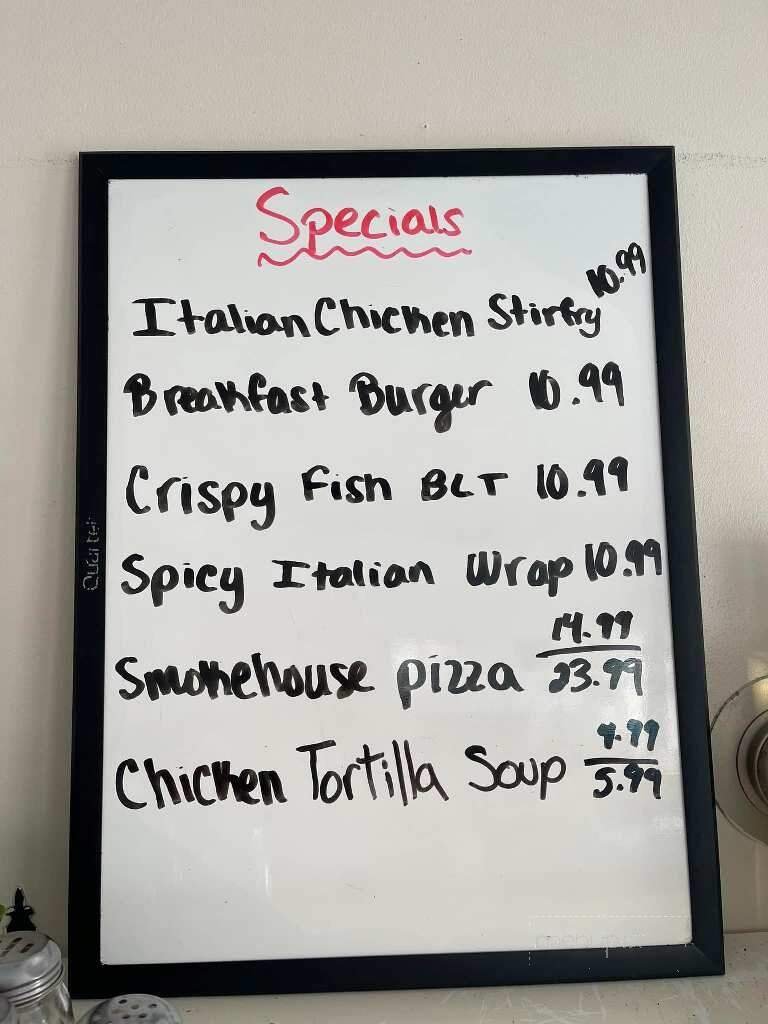 Specials
Italian Chicken Stirfry 10.99
Breakfast Burger 10.99
Crispy Fish BLT 10.99
Spicy Italian Wrap 10.99
Smokehouse pizza 14.99
23.99
Chicken Tortilla Soup 4.99
5.99
Quartet